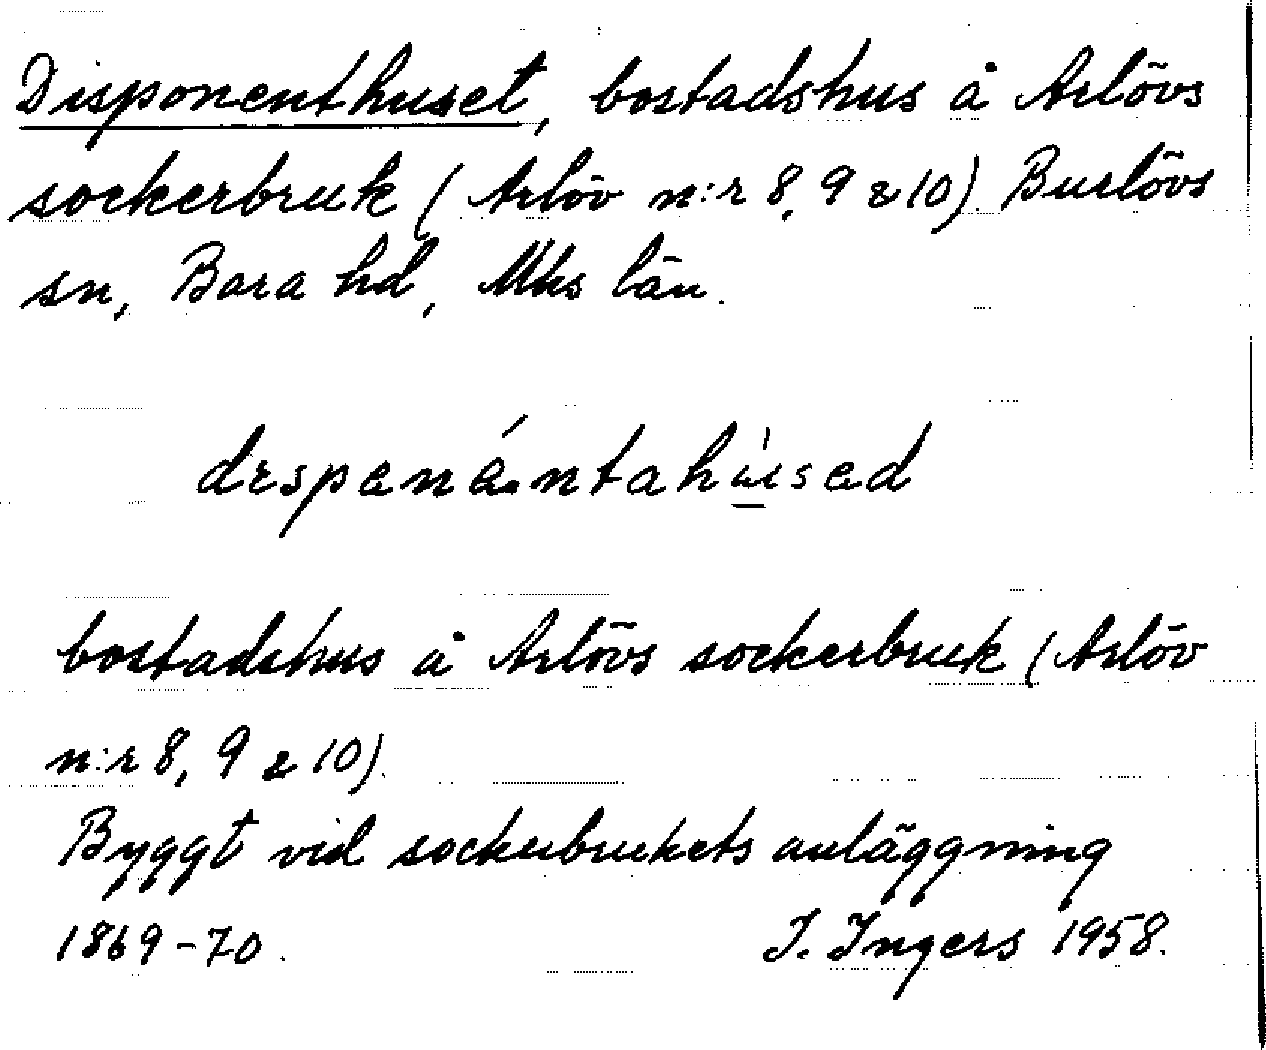 Disponenthuset, bostadshus å Arlövs
sockerbruk (Arlöv n:r 8, 9 & 10). Burlövs
sn, Bara hd, Mhs län.
bostadshus å Arlövs sockerbruk (Arlöv
n:r 8, 9 & 10).
Byggt vid sockerbrukets anläggning
1869-70. I. Ingers 1958.